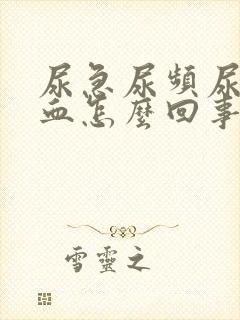 尿急尿频尿
血怎麼回事
雪靈之